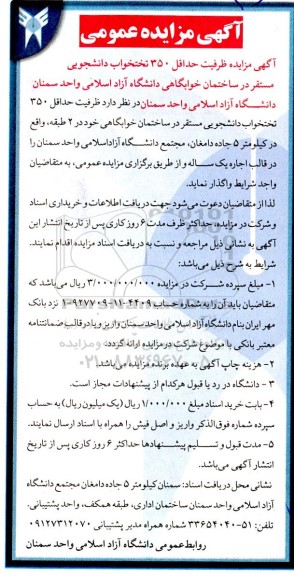 آگهی مزایده عمومی
آگهی مزایده ظرفیت حداقل ۳۵۰ تختخواب دانشجویی
مستقر در ساختمان خوابگاهی دانشگاه آزاد اسلامی واحد سمنان
دانشگاه آزاد اسلامی واحد سمنان در نظر دارد ظرفیت حداقل ۳۵۰
تختخواب دانشجویی مستقر در ساختمان خوابگاهی خود در ۲ طبقه، واقع
در کیلومتر ۵ جاده دامغان، مجتمع دانشگاه آزاد اسلامی واحد سمنان را
در قالب اجاره یک ساله و از طریق برگزاری مزایده عمومی، به متقاضیان
واجد شرایط واگذار نماید.
لذا از متقاضیان دعوت می‌شود جهت دریافت اطلاعات و خریداری اسناد
و شرکت در مزایده، حداکثر ظرف مدت ۶ روز کاری پس از تاریخ انتشار این
آگهی به نشانی ذیل مراجعه و نسبت به دریافت اسناد مزایده اقدام نمایند.
شرایط به شرح ذیل می‌باشد:
۱- مبلغ سپرده شرکت در مزایده ۳/۰۰۰/۰۰۰/۰۰۰ ریال می‌باشد که
متقاضیان باید آن را به شماره حساب ۴۴۰۹-۱۱-۹۲۷۷۰۹-۱ نزد بانک
مهر ایران بنام دانشگاه آزاد اسلامی واحد سمنان واریز و یا در قالب ضمانتنامه
معتبر بانکی با موضوع شرکت در مزایده ارائه گردد.
۲- هزینه چاپ آگهی به عهده برنده مزایده می‌باشد.
۳- دانشگاه در رد یا قبول هرکدام از پیشنهادات مجاز است.
۴- بابت خرید اسناد مبلغ ۱/۰۰۰/۰۰۰ ریال (یک میلیون ریال) به حساب
سپرده شماره فوق الذکر واریز و اصل فیش را همراه با اسناد ارسال نمایند.
۵- مدت قبول و تسلیم پیشنهادها حداکثر ۶ روز کاری پس از تاریخ
انتشار آگهی می‌باشد.
نشانی محل دریافت اسناد: سمنان کیلومتر ۵ جاده دامغان مجتمع دانشگاه
آزاد اسلامی واحد سمنان ساختمان اداری، طبقه همکف، واحد پشتیبانی.
تلفن: ۵۱-۳۳۶۵۴۰۴۰ شماره همراه مدیر پشتیبانی ۰۹۱۲۷۳۱۲۰۷۰
روابط عمومی دانشگاه آزاد اسلامی واحد سمنان